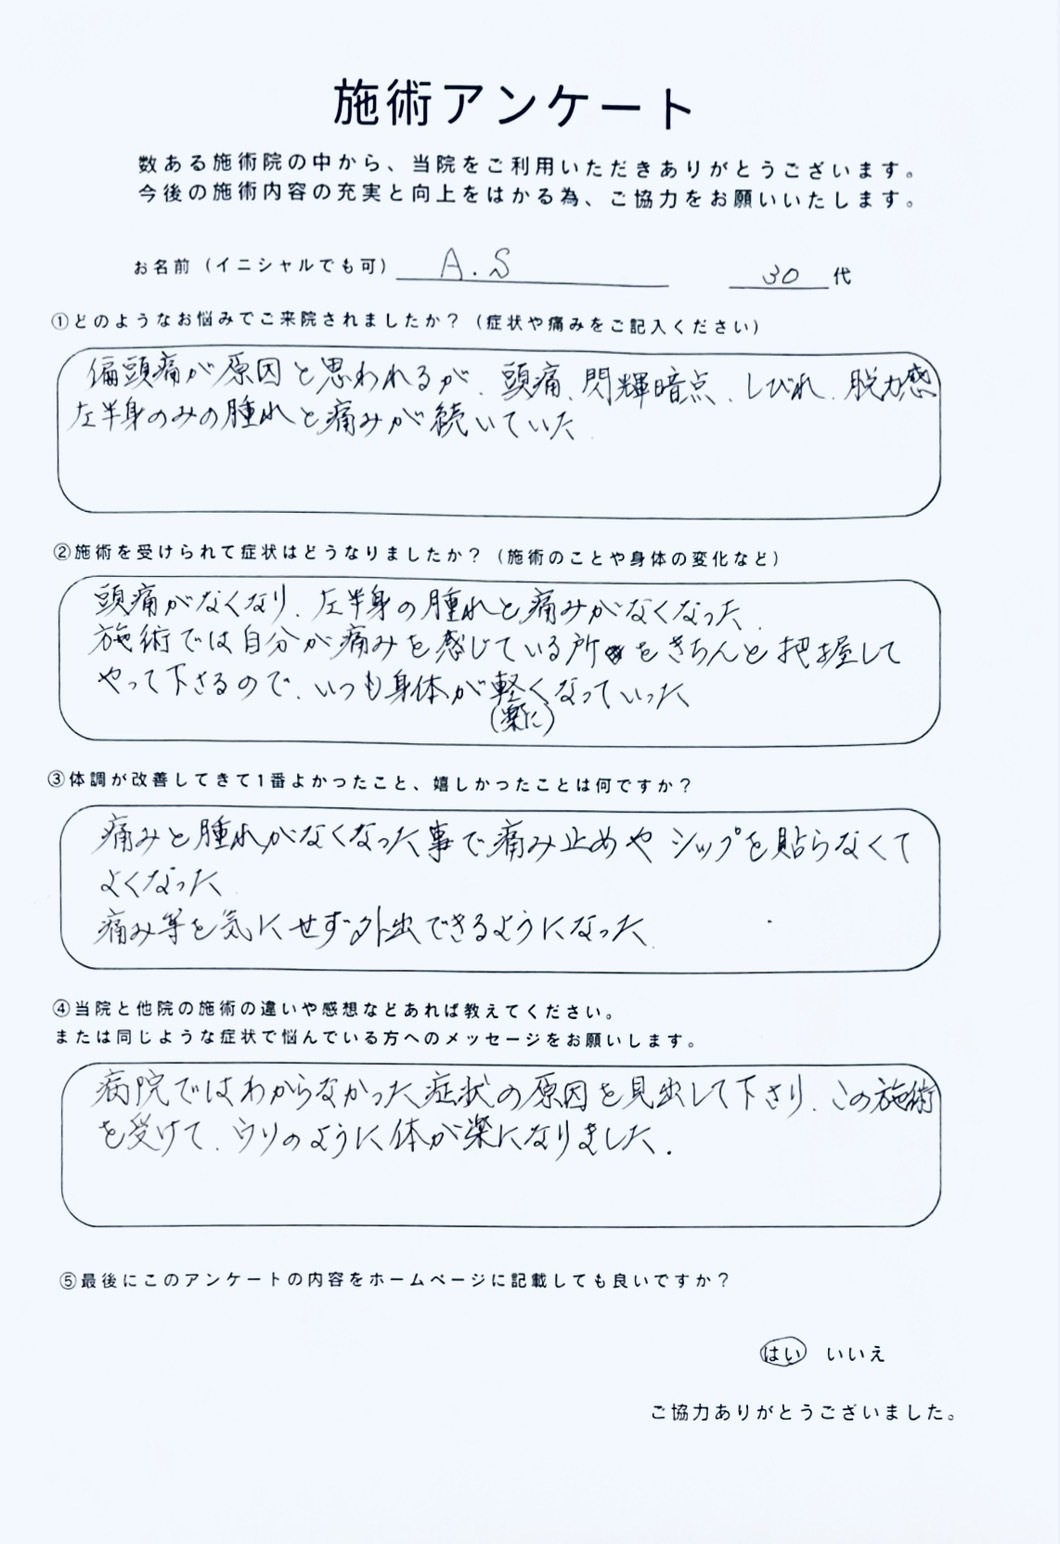 施術アンケート
数ある施術院の中から、当院をご利用いただきありがとうございます。
今後の施術内容の充実と向上をはかる為、ご協力をお願いいたします。
お名前(イニシャルでも可) A.S 30 代
①どのようなお悩みでご来院されましたか?(症状や痛みをご記入ください)
偏頭痛が原因と思われるが、頭痛、閃輝暗点、しびれ、脱力感
左半身のみの腫れと痛みが続いていた
②施術を受けられて症状はどうなりましたか?(施術のことや身体の変化など)
頭痛がなくなり、左半身の腫れと痛みがなくなった。
施術では自分が痛みを感じている所をきちんと把握して
やって下さるので、いつも身体が軽くなっていった
(楽に)
③体調が改善してきて1番よかったこと、嬉しかったことは何ですか?
痛みと腫れがなくなった事で痛み止めやシップを貼らなくて
よくなった
痛み等を気にせず外出できるようになった。
④当院と他院の施術の違いや感想などあれば教えてください。
または同じような症状で悩んでいる方へのメッセージをお願いします。
病院ではわからなかった症状の原因を見出して下さり、この施術
を受けて、ウソのように体が楽になりました.
⑤最後にこのアンケートの内容をホームページに記載しても良いですか?
はい いいえ
ご協力ありがとうございました。